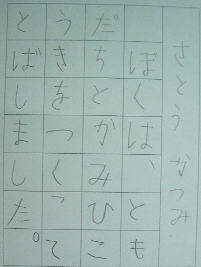 さとう かつみ
ぼくは、とも
だちとかみひこ
うきをつくって
とばしました。